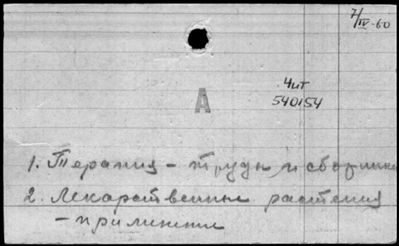 7/IV-60
Чит
540154
А
1. Терапия - труды и сборники
2. Лекарственные растения
- применение